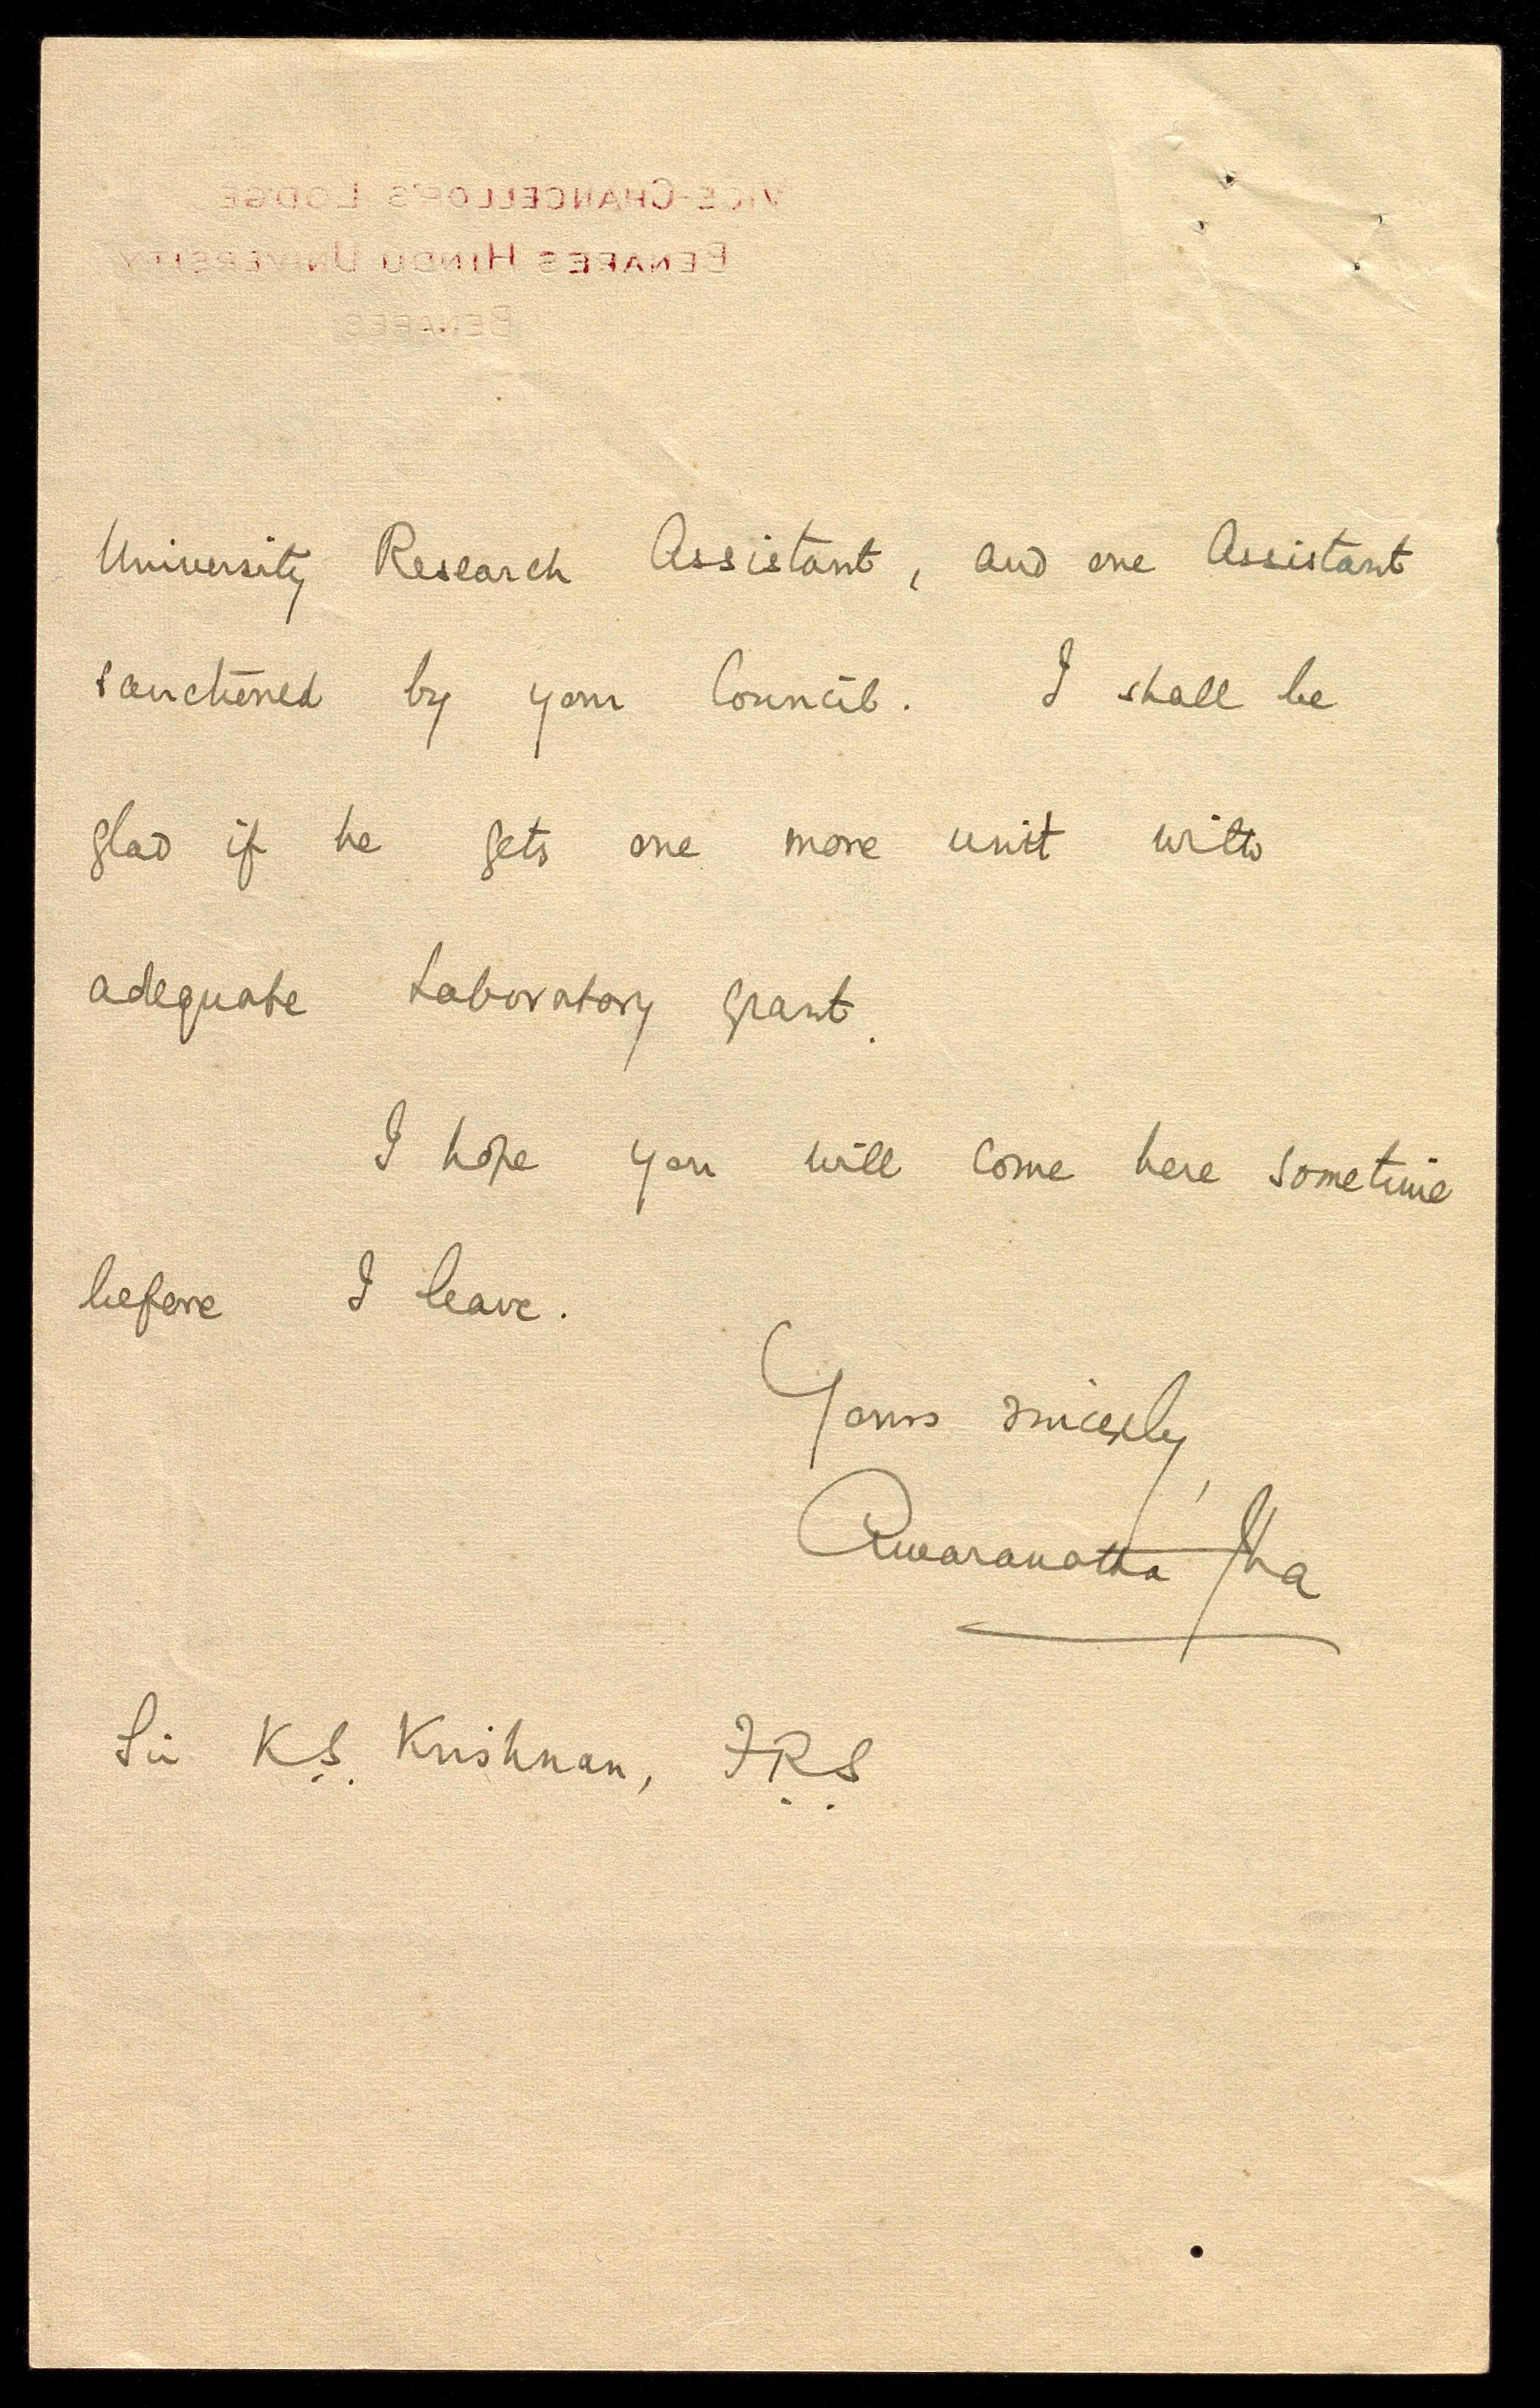 VICE-CHANCELLOR'S LODGE
BENARES HINDU UNIVERSITY
BENARES
University Research Assistant, and one Assistant
sanctioned by your Council. I shall be
glad if he gets one more unit with
adequate Laboratory grant.
I hope you will come here sometime
before I leave.
Yours sincerely,
Amaranatha Jha
Sir K.S. Krishnan, F.R.S.